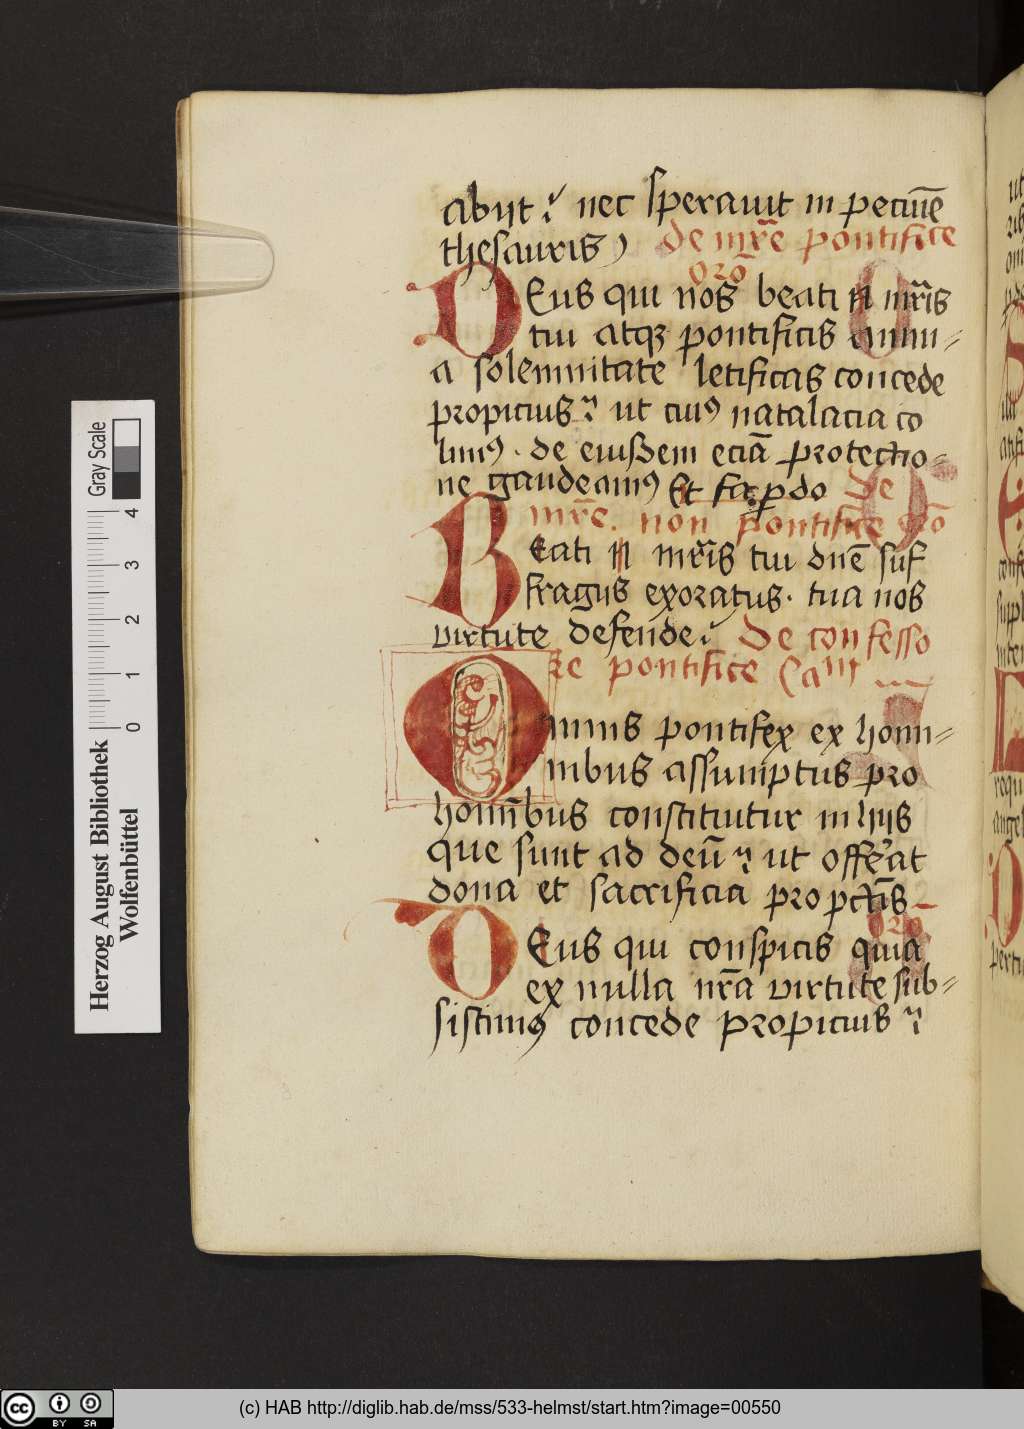 abijt ? nec sperauit in pecunie
thesauris) de mr̄e pontifice
oro
DEus qui nos beati N mr̄is
tui atqz pontificis annu=
a solemnitate letificas concede
propicius ? ut cuiꝰ natalacia co
limꝰ . de eiusdem eciā protectio=
ne gaudeamꝰ Et fac p do de
mr̄e . non pontifice oro
Beati N mr̄is tui dn̄e suf
fragijs exoratus . tua nos
virtute defende ? De confesso
re pontifice Cam
Omnis pontifex ex homi=
nibus assumptus pro
homīnbus constituitur in hijs
que sunt ad deū ? ut offerat
dona et sacrificia pro pctīs
oro
DEus qui conspicis quia
ex nulla nr̄a virtute sub=
sistimꝰ concede propicius ?
Herzog August Bibliothek
Wolfenbüttel
Gray Scale
0 1 2 3 4
cc BY SA
(c) HAB http://diglib.hab.de/mss/533-helmst/start.htm?image=00550